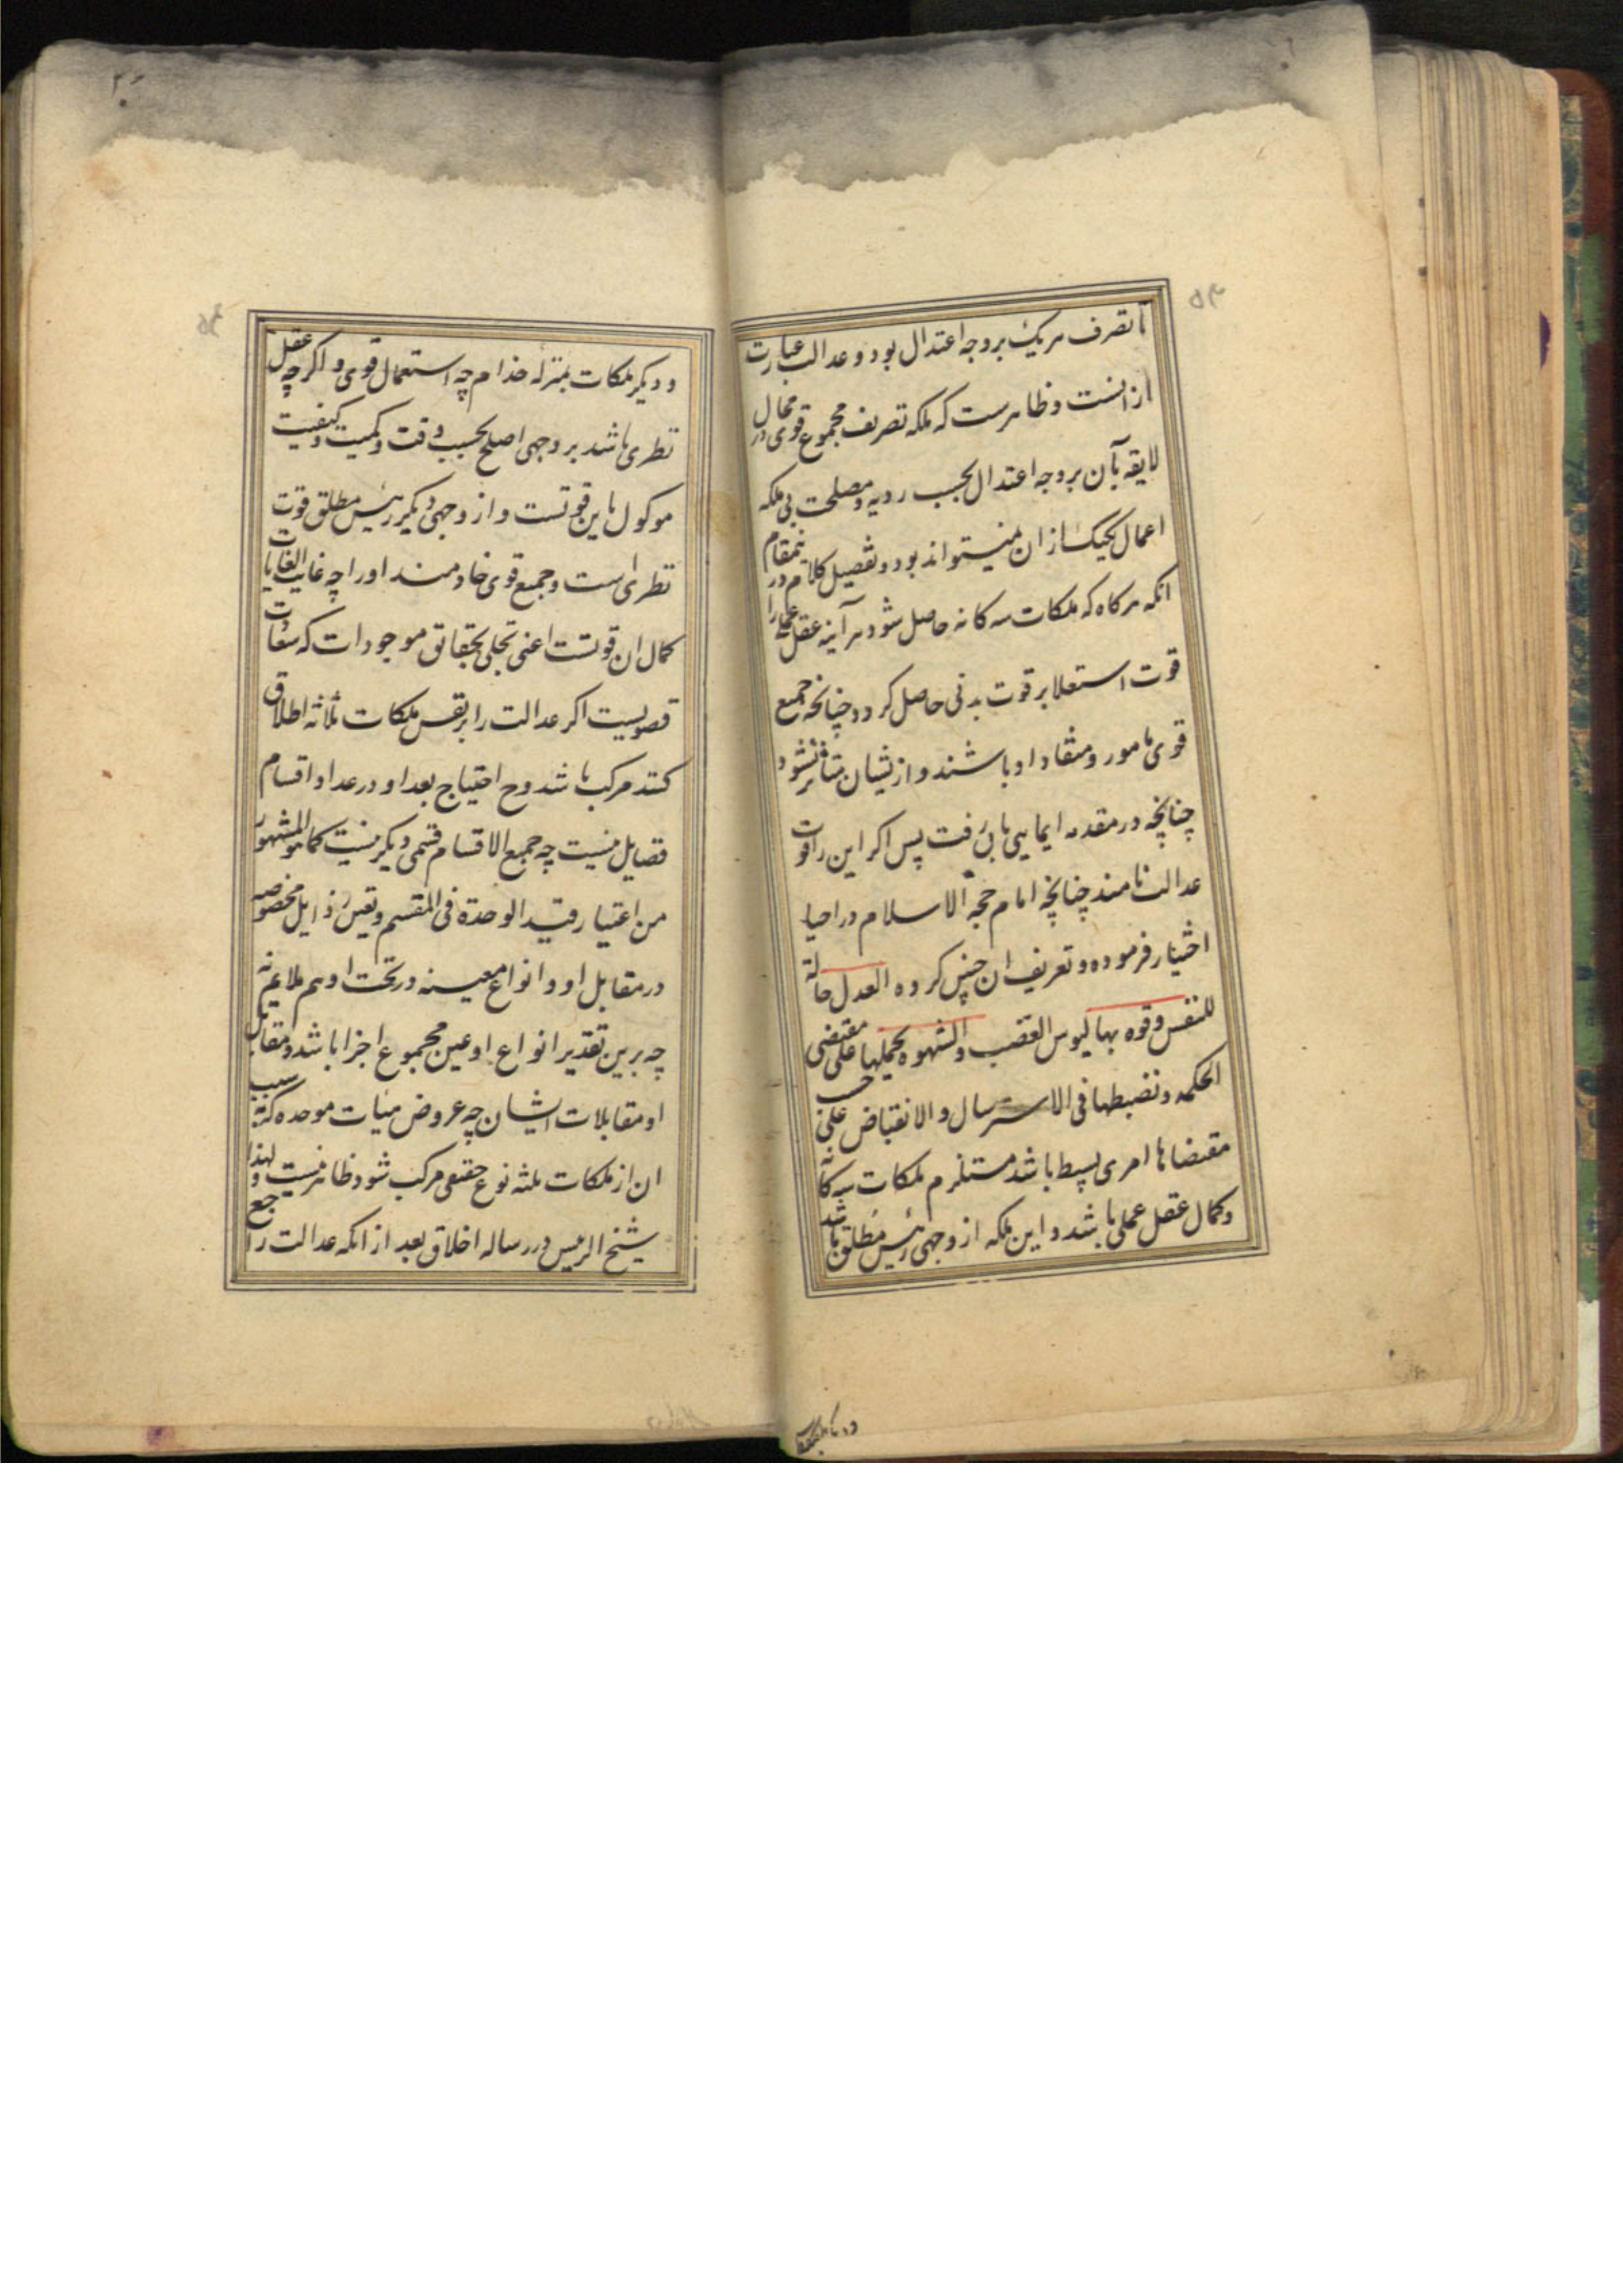 ۵۳
تا تصرف هریک بر وجه اعتدال بود و عدالت عبارت
ازانست و ظاهرست که ملکه تصریف مجموع قوی در محال
لایقه بآن بر وجه اعتدال بحسب رویه و مصلحت بی ملکه
اعمال یکیک ازان نمیتواند بود و تفصیل کلام درینمقام
انکه هرکاه که ملکات سه کانه حاصل شود هر آینه عقل عملی را
قوت استعلا بر قوت بدنی حاصل کردد چنانچه جمیع
قوی مامور و منقاد او باشند و ازیشان متأثر نشود
چنانچه در مقدمه ایمایی بآن رفت پس اکر این قوت را
عدالت نامند چنانچه امام حجة الاسلام در احیا
اختیار فرموده و تعریف ان چنین کرده العدل حالة
للنفس و قوه بها یسوس الغضب والشهوه یحملها علی مقتضی
الحکمه و تضبطها فی الاسترسال والانقباض علی حسب
مقتضاها امری بسیط باشد مستلزم ملکات سه کانه
و کمال عقل عملی باشد و این ملکه از وجهی رئیس مطلق باشد
و دیکر ملکات
۵۴
و دیکر ملکات بمنزله خدام چه استعمال قوی و اکر چه عقل
نظری باشد بر وجهی اصلح بحسب وقت و کمیت و کیفیت
موکول باین قوتست و از وجهی دیکر رئیس مطلق قوت
نظری است و جمیع قوی خادمند او را چه غایت الغایات
کمال ان قوتست اعنی تجلی بحقائق موجودات که سعادت
قصویست اکر عدالت را بر نفس ملکات ثلاثه اطلاق
کنند مرکب باشد وح احتیاج بعد او در عداد اقسام
فضایل نیست چه جمیع الاقسام قسمی دیکر نیست کما هو المشهور
من اعتبار قید الوحدة فی المقسم و تعین رذایل مخصوصه
در مقابل او و انواع معینه در تحت او هم ملایم نه
چه برین تقدیر انواع او عین مجموع اجزا باشد و مقابل
او مقابلات ایشان چه عروض هیأت موحده که بسبب
ان از ملکات ثلثه نوع حقیقی مرکب شود ظاهر نیست و لهذا
شیخ الرئیس در رساله اخلاق بعد از انکه عدالت را جمع